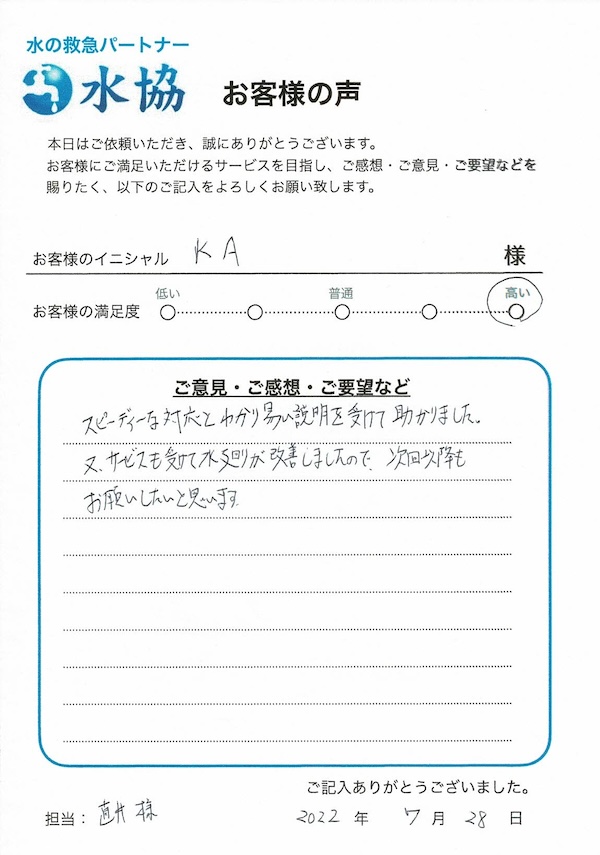 水の救急パートナー
水協 お客様の声
本日はご依頼いただき、誠にありがとうございます。
お客様にご満足いただけるサービスを目指し、ご感想・ご意見・ご要望などを
賜りたく、以下のご記入をよろしくお願い致します。
お客様のイニシャル KA 様
低い 普通 高い
お客様の満足度
ご意見・ご感想・ご要望など
スピーディーな対応とわかり易い説明を受けて助かりました。
又、サービスも受けて水廻りが改善しましたので、次回以降も
お願いしたいと思います。
ご記入ありがとうございました。
担当: 様 2022 年 7 月 28 日